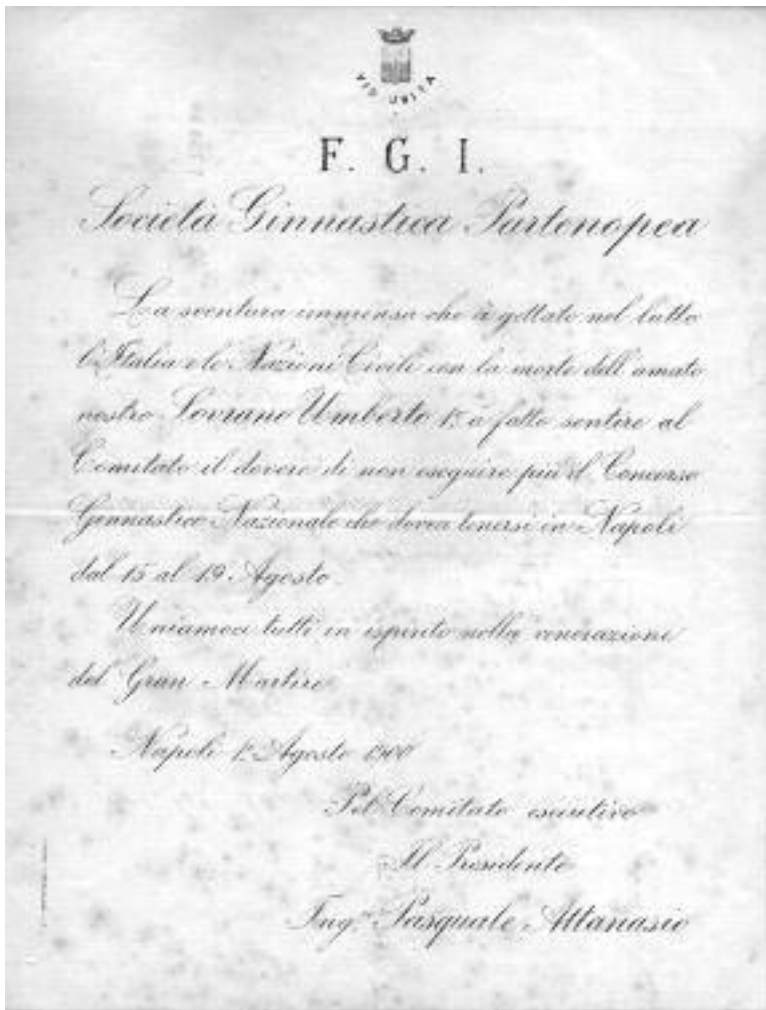 F. G. I.
Società Ginnastica Partenopea
La sventura immensa che à gettato nel lutto
l'Italia e le Nazioni Civili con la morte dell'amato
nostro Sovrano Umberto 1º à fatto sentire al
Comitato il dovere di non eseguire più il Concorso
Ginnastico Nazionale che dovea tenersi in Napoli
dal 15 al 19 Agosto.
Uniamoci tutti in ispirito nella venerazione
del Gran Martire
Napoli 1º Agosto 1900
Pel Comitato esecutivo
Il Presidente
Ing.re Pasquale Attanasio